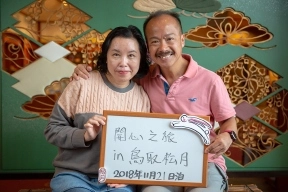 開心之旅
in 鳥取松月
2018年11月21日泊